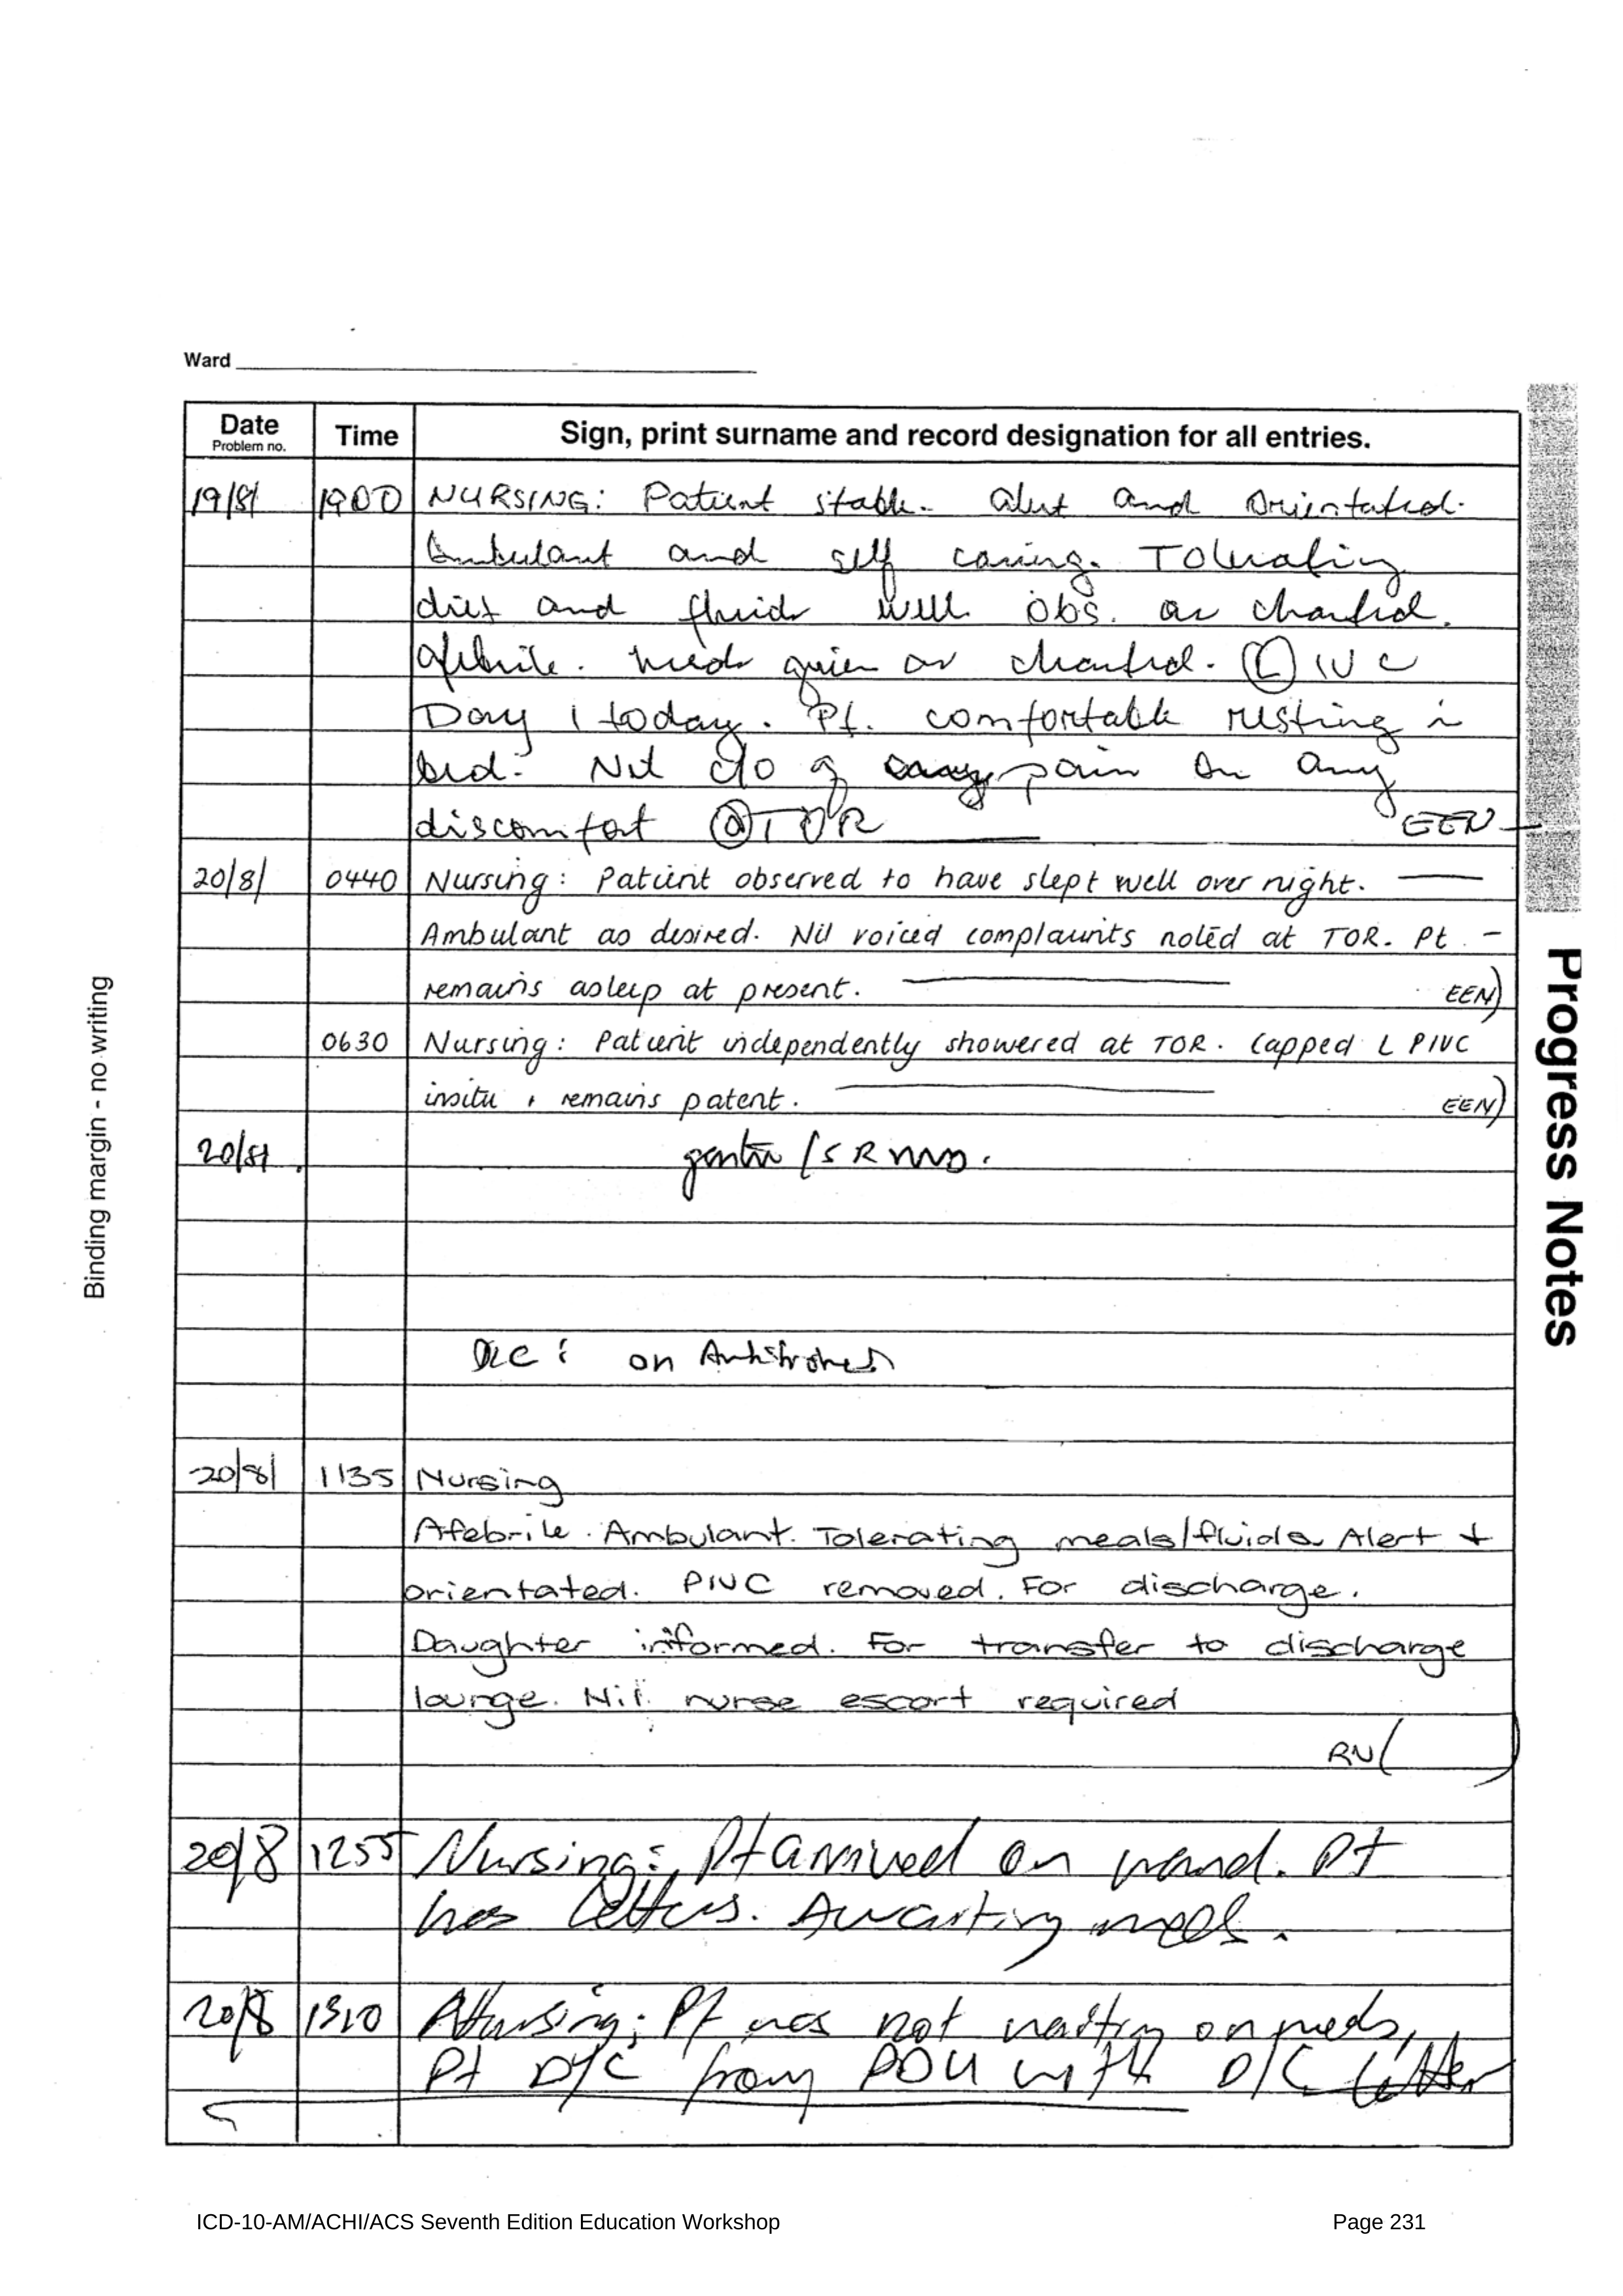 Ward
Date Problem no. Time Sign, print surname and record designation for all entries.
19/8/ 1900 NURSING: Patient stable. Alert and Orientated.
Ambulant and self caring. Tolerating
diet and fluids well obs. as charted.
afebrile. meds given as charted. (L) IVC
Day 1 today. Pt. comfortable resting in
bed. Nil c/o of pain or any
discomfort @TOR EEN
20/8/ 0440 Nursing: Patient observed to have slept well over night.
Ambulant as desired. Nil voiced complaints noted at TOR. Pt
remains asleep at present. EEN)
0630 Nursing: Patient independently showered at TOR. Capped L PIVC
insitu + remains patent. EEN)
20/8/ gastro / S R
on
20/8/ 1135 Nursing
Afebrile. Ambulant. Tolerating meals/fluids. Alert +
orientated. PIVC removed. For discharge.
Daughter informed. For transfer to discharge
lounge. Nil nurse escort required
RN( )
20/8 1255 Nursing: Pt arrived on ward. Pt
has letters. Awaiting meds.
20/8 1310 Nursing: Pt was not waiting on meds,
Pt D/C from with D/C letter
Binding margin - no writing
Progress Notes
ICD-10-AM/ACHI/ACS Seventh Edition Education Workshop Page 231